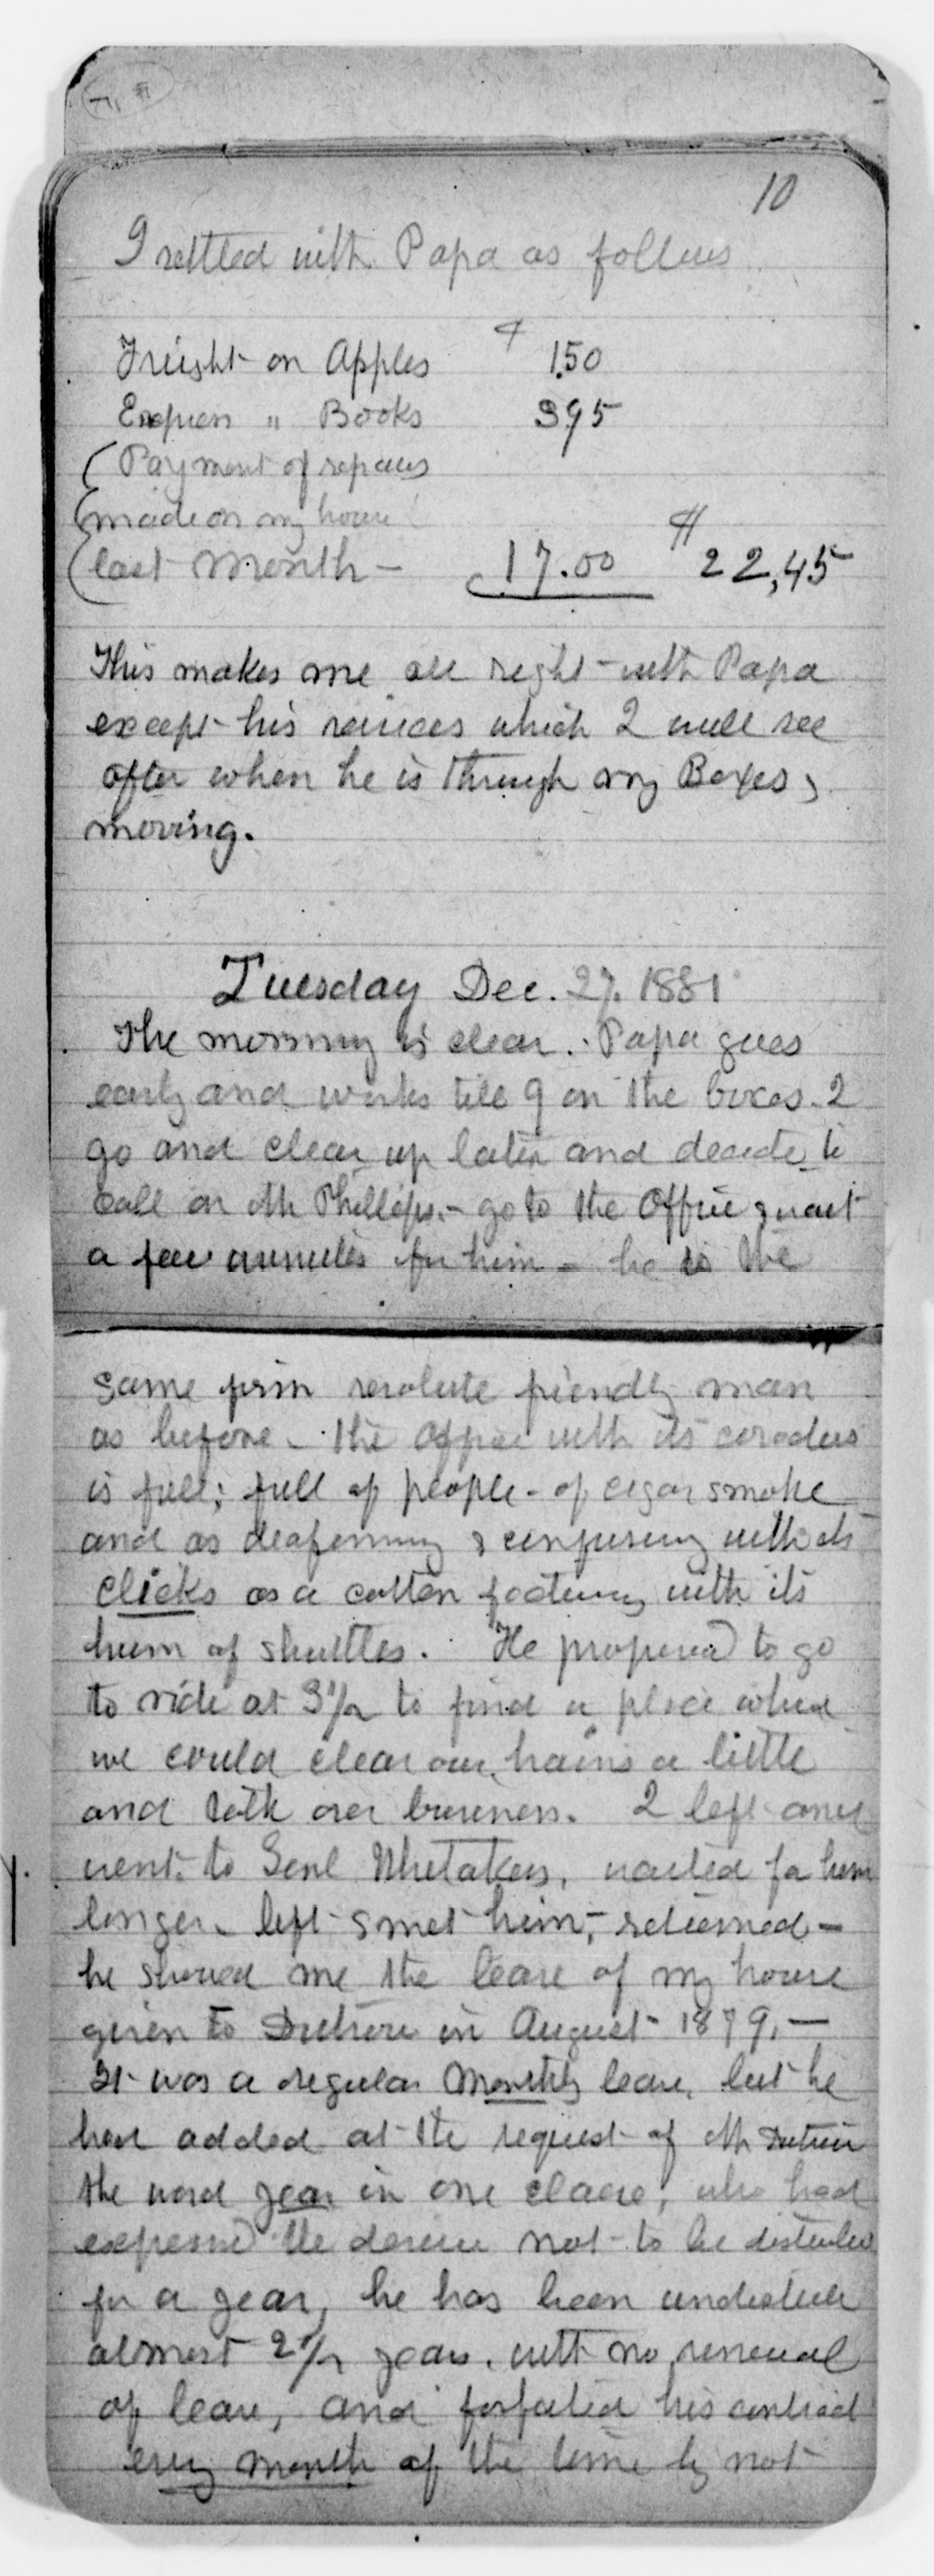 10
I settled with Papa as follows
Freight on Apples $ 1.50
Express " Books 3,95
(Payment of repairs
(made on my house
(last Month – 17.00 $ 22,45
This makes me all right with Papa
except his services which I will see
after when he is through my Boxes,
moving.
Tuesday Dec. 27. 1881
The morning is clear. Papa goes
early and works till 9 on the boxes. I
go and clear up later and decide to
call on Mr Phillips. – go to the Office & wait
a few minutes for him – he is the
same prim resolute friendly man
as before. The office with its
is full; full of people – of cigar smoke
and as deafening & confusing with its
clicks as a cotton factory with its
hum of shuttles. He proposed to go
to ride at 3 1/2 to find a place where
we could clear our brains a little
and talk over business. I left and
went to Genl Whitakers, waited for him
longer. left & met him, – returned –
he showed me the lease of my house
given to in August 1879. –
It was a regular Monthly lease, but he
had added at the request of Mr
the word year in one clause, who had
expressed the desire not to be disturbed
for a year, he has been undisturb
almost 2 1/2 years, with no renewal
of lease, and forfeited his contract
every month of the time by not